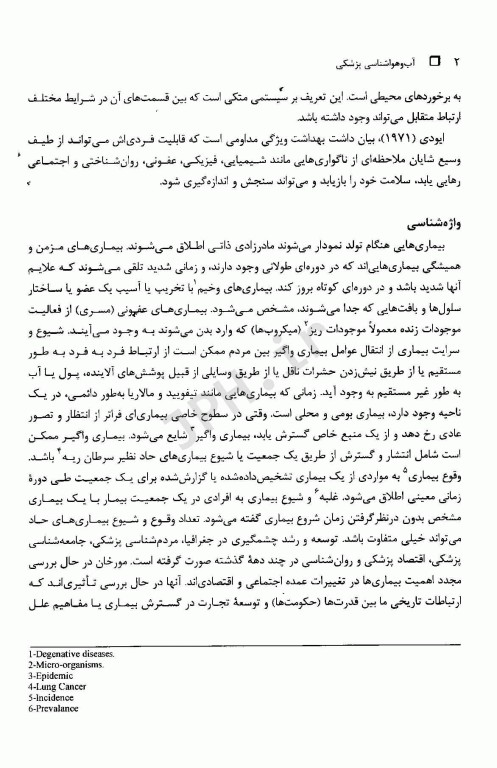 ۲ ❐ آب‌وهواشناسی پزشکی
به برخوردهای محیطی است. این تعریف بر سیستمی متکی است که بین قسمت‌های آن در شرایط مختلف
ارتباط متقابل می‌تواند وجود داشته باشد.
ایودی (۱۹۷۱)، بیان داشت بهداشت ویژگی مداومی است که قابلیت فردی‌اش می‌تواند از طیف
وسیع شایان ملاحظه‌ای از ناگواری‌هایی مانند شیمیایی، فیزیکی، عفونی، روان‌شناختی و اجتماعی
رهایی یابد، سلامت خود را بازیابد و می‌تواند سنجش و اندازه‌گیری شود.
واژه‌شناسی
بیماری‌هایی هنگام تولد نمودار می‌شوند مادرزادی ذاتی اطلاق می‌شوند. بیماری‌های مزمن و
همیشگی بیماری‌هایی‌اند که در دوره‌ای طولانی وجود دارند، و زمانی شدید تلقی می‌شوند که علایم
آنها شدید باشد و در دوره‌ای کوتاه بروز کند. بیماری‌های وخیم¹ با تخریب یا آسیب یک عضو یا ساختار
سلول‌ها و بافت‌هایی که جدا می‌شوند، مشخص می‌شود. بیماری‌های عفونی (مسری) از فعالیت
موجودات زنده معمولاً موجودات ریز² (میکروب‌ها) که وارد بدن می‌شوند به وجود می‌آیند. شیوع و
سرایت بیماری از انتقال عوامل بیماری واگیر بین مردم ممکن است از ارتباط فرد به فرد به طور
مستقیم یا از طریق نیش‌زدن حشرات ناقل یا از طریق وسایلی از قبیل پوشش‌های آلاینده، پول یا آب
به طور غیر مستقیم به وجود آید. زمانی که بیماری‌هایی مانند تیفویید و مالاریا به‌طور دائمی، در یک
ناحیه وجود دارد، بیماری بومی و محلی است. وقتی در سطوح خاصی بیماری‌ای فراتر از انتظار و تصور
عادی رخ دهد و از یک منبع خاص گسترش یابد، بیماری واگیر³ شایع می‌شود. بیماری واگیر ممکن
است شامل انتشار و گسترش از طریق یک جمعیت یا شیوع بیماری‌های حاد نظیر سرطان ریه⁴ باشد.
وقوع بیماری⁵ به مواردی از یک بیماری تشخیص‌داده‌شده یا گزارش‌شده برای یک جمعیت طی دورهٔ
زمانی معینی اطلاق می‌شود. غلبه⁶ و شیوع بیماری به افرادی در یک جمعیت بیمار با یک بیماری
مشخص بدون درنظرگرفتن زمان شروع بیماری گفته می‌شود. تعداد وقوع و شیوع بیماری‌های حاد
می‌تواند خیلی متفاوت باشد. توسعه و رشد چشمگیری در جغرافیا، مردم‌شناسی پزشکی، جامعه‌شناسی
پزشکی، اقتصاد پزشکی و روان‌شناسی در چند دههٔ گذشته صورت گرفته است. مورخان در حال بررسی
مجدد اهمیت بیماری‌ها در تغییرات عمده اجتماعی و اقتصادی‌اند. آنها در حال بررسی تأثیری‌اند که
ارتباطات تاریخی ما بین قدرت‌ها (حکومت‌ها) و توسعهٔ تجارت در گسترش بیماری یا مفاهیم علل
1-Degenative diseases.
2-Micro-organisms.
3-Epidemic
4-Lung Cancer
5-Incidence
6-Prevalance